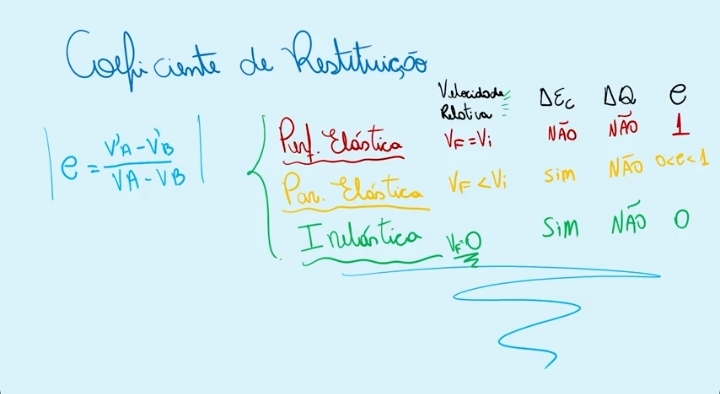 Coeficiente de Restituição
Velocidade Relativa ΔEc ΔQ e
|e = V'A - V'B / VA - VB|
Perf. Elástica VF = Vi NÃO NÃO 1
Par. Elástica VF < Vi SIM NÃO 0<e<1
Inelástica VF=0 SIM NÃO 0